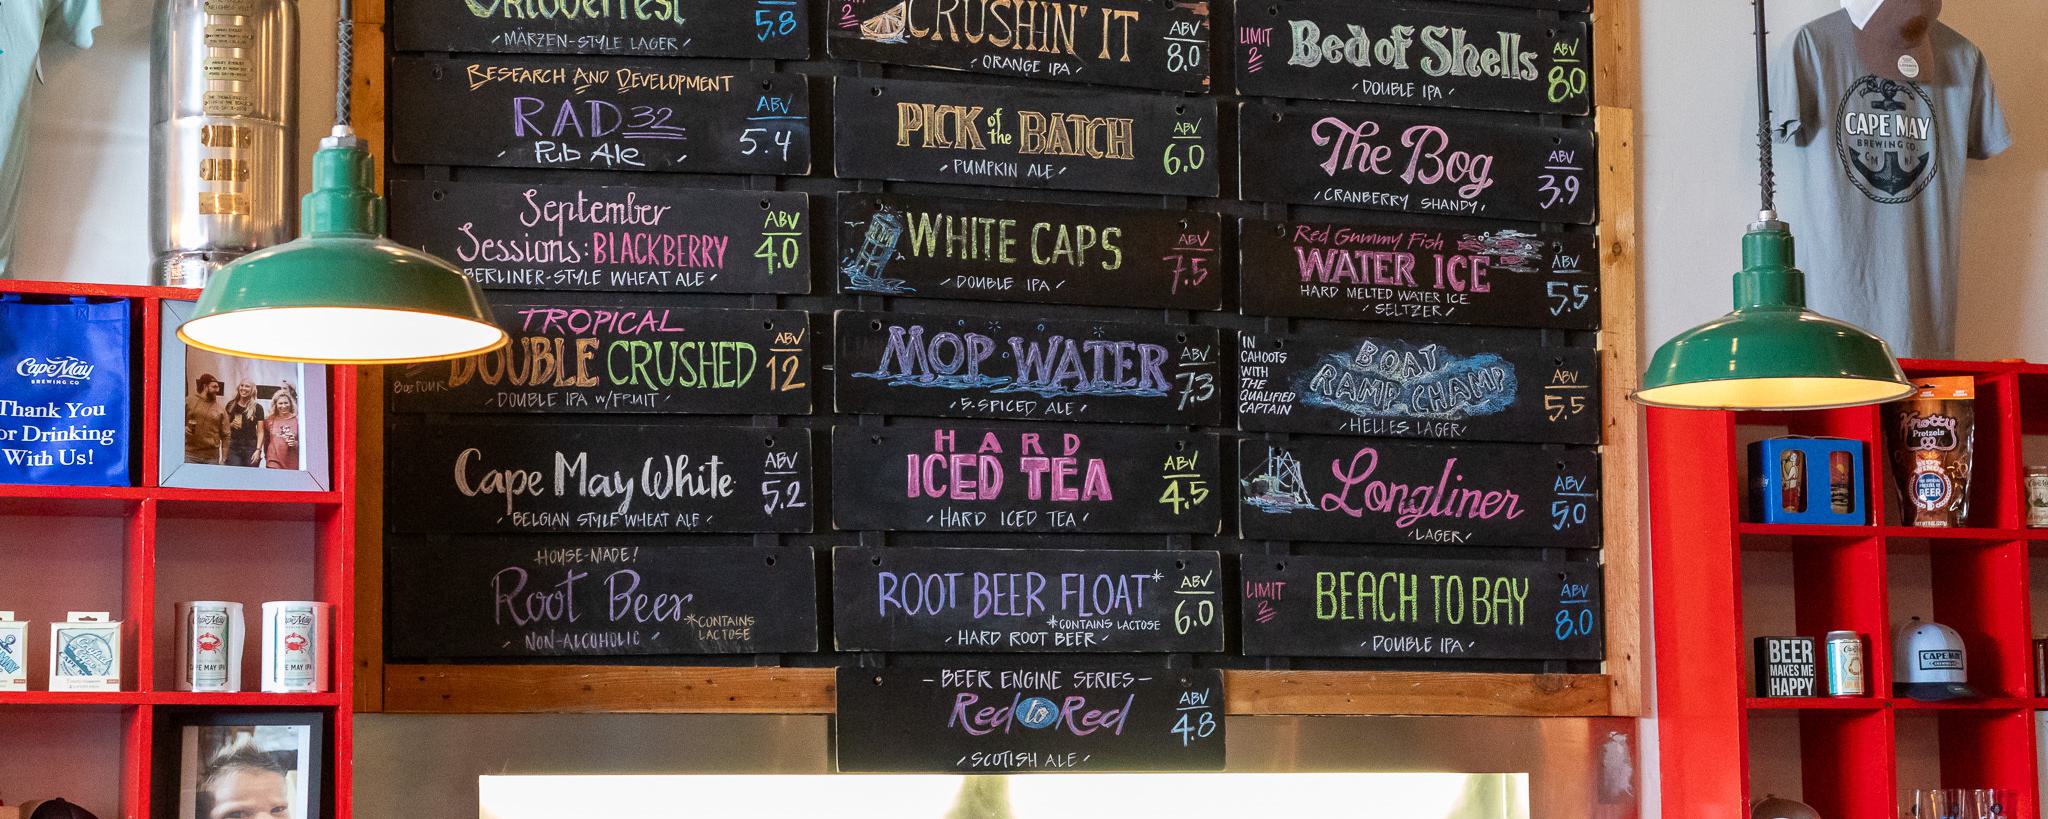 Oktoberfest
MÄRZEN-STYLE LAGER
5.8
RESEARCH AND DEVELOPMENT
RAD 32
Pub Ale
ABV
5.4
September
Sessions: BLACKBERRY
BERLINER-STYLE WHEAT ALE
ABV
4.0
TROPICAL
DOUBLE CRUSHED
8oz POUR
DOUBLE IPA W/FRUIT
ABV
12
Cape May White
BELGIAN STYLE WHEAT ALE
ABV
5.2
HOUSE-MADE!
Root Beer
*CONTAINS
LACTOSE
NON-ALCOHOLIC
2
CRUSHIN' IT
ORANGE IPA
ABV
8.0
PICK of the BATCH
PUMPKIN ALE
ABV
6.0
WHITE CAPS
DOUBLE IPA
ABV
7.5
MOP WATER
5-SPICED ALE
ABV
7.3
HARD
ICED TEA
HARD ICED TEA
ABV
4.5
ROOT BEER FLOAT*
*CONTAINS LACTOSE
HARD ROOT BEER
ABV
6.0
- BEER ENGINE SERIES -
Red to Red
SCOTISH ALE
ABV
4.8
LIMIT
2
Bed of Shells
DOUBLE IPA
ABV
8.0
The Bog
CRANBERRY SHANDY
ABV
3.9
Red Gummy Fish
WATER ICE
HARD MELTED WATER ICE
SELTZER
ABV
5.5
IN
CAHOOTS
WITH
THE
QUALIFIED
CAPTAIN
BOAT
RAMP CHAMP
HELLES LAGER
ABV
5.5
Longliner
LAGER
ABV
5.0
LIMIT
2
BEACH TO BAY
DOUBLE IPA
ABV
8.0
Cape May
BREWING CO
Thank You
or Drinking
With Us!
Cape May
CAPE MAY IPA
Cape May
CAPE MAY IPA
CAPE MAY
BREWING CO.
CM NJ
Knotty
Pretzels
BEER
BEER
MAKES ME
HAPPY
CAPE MAY